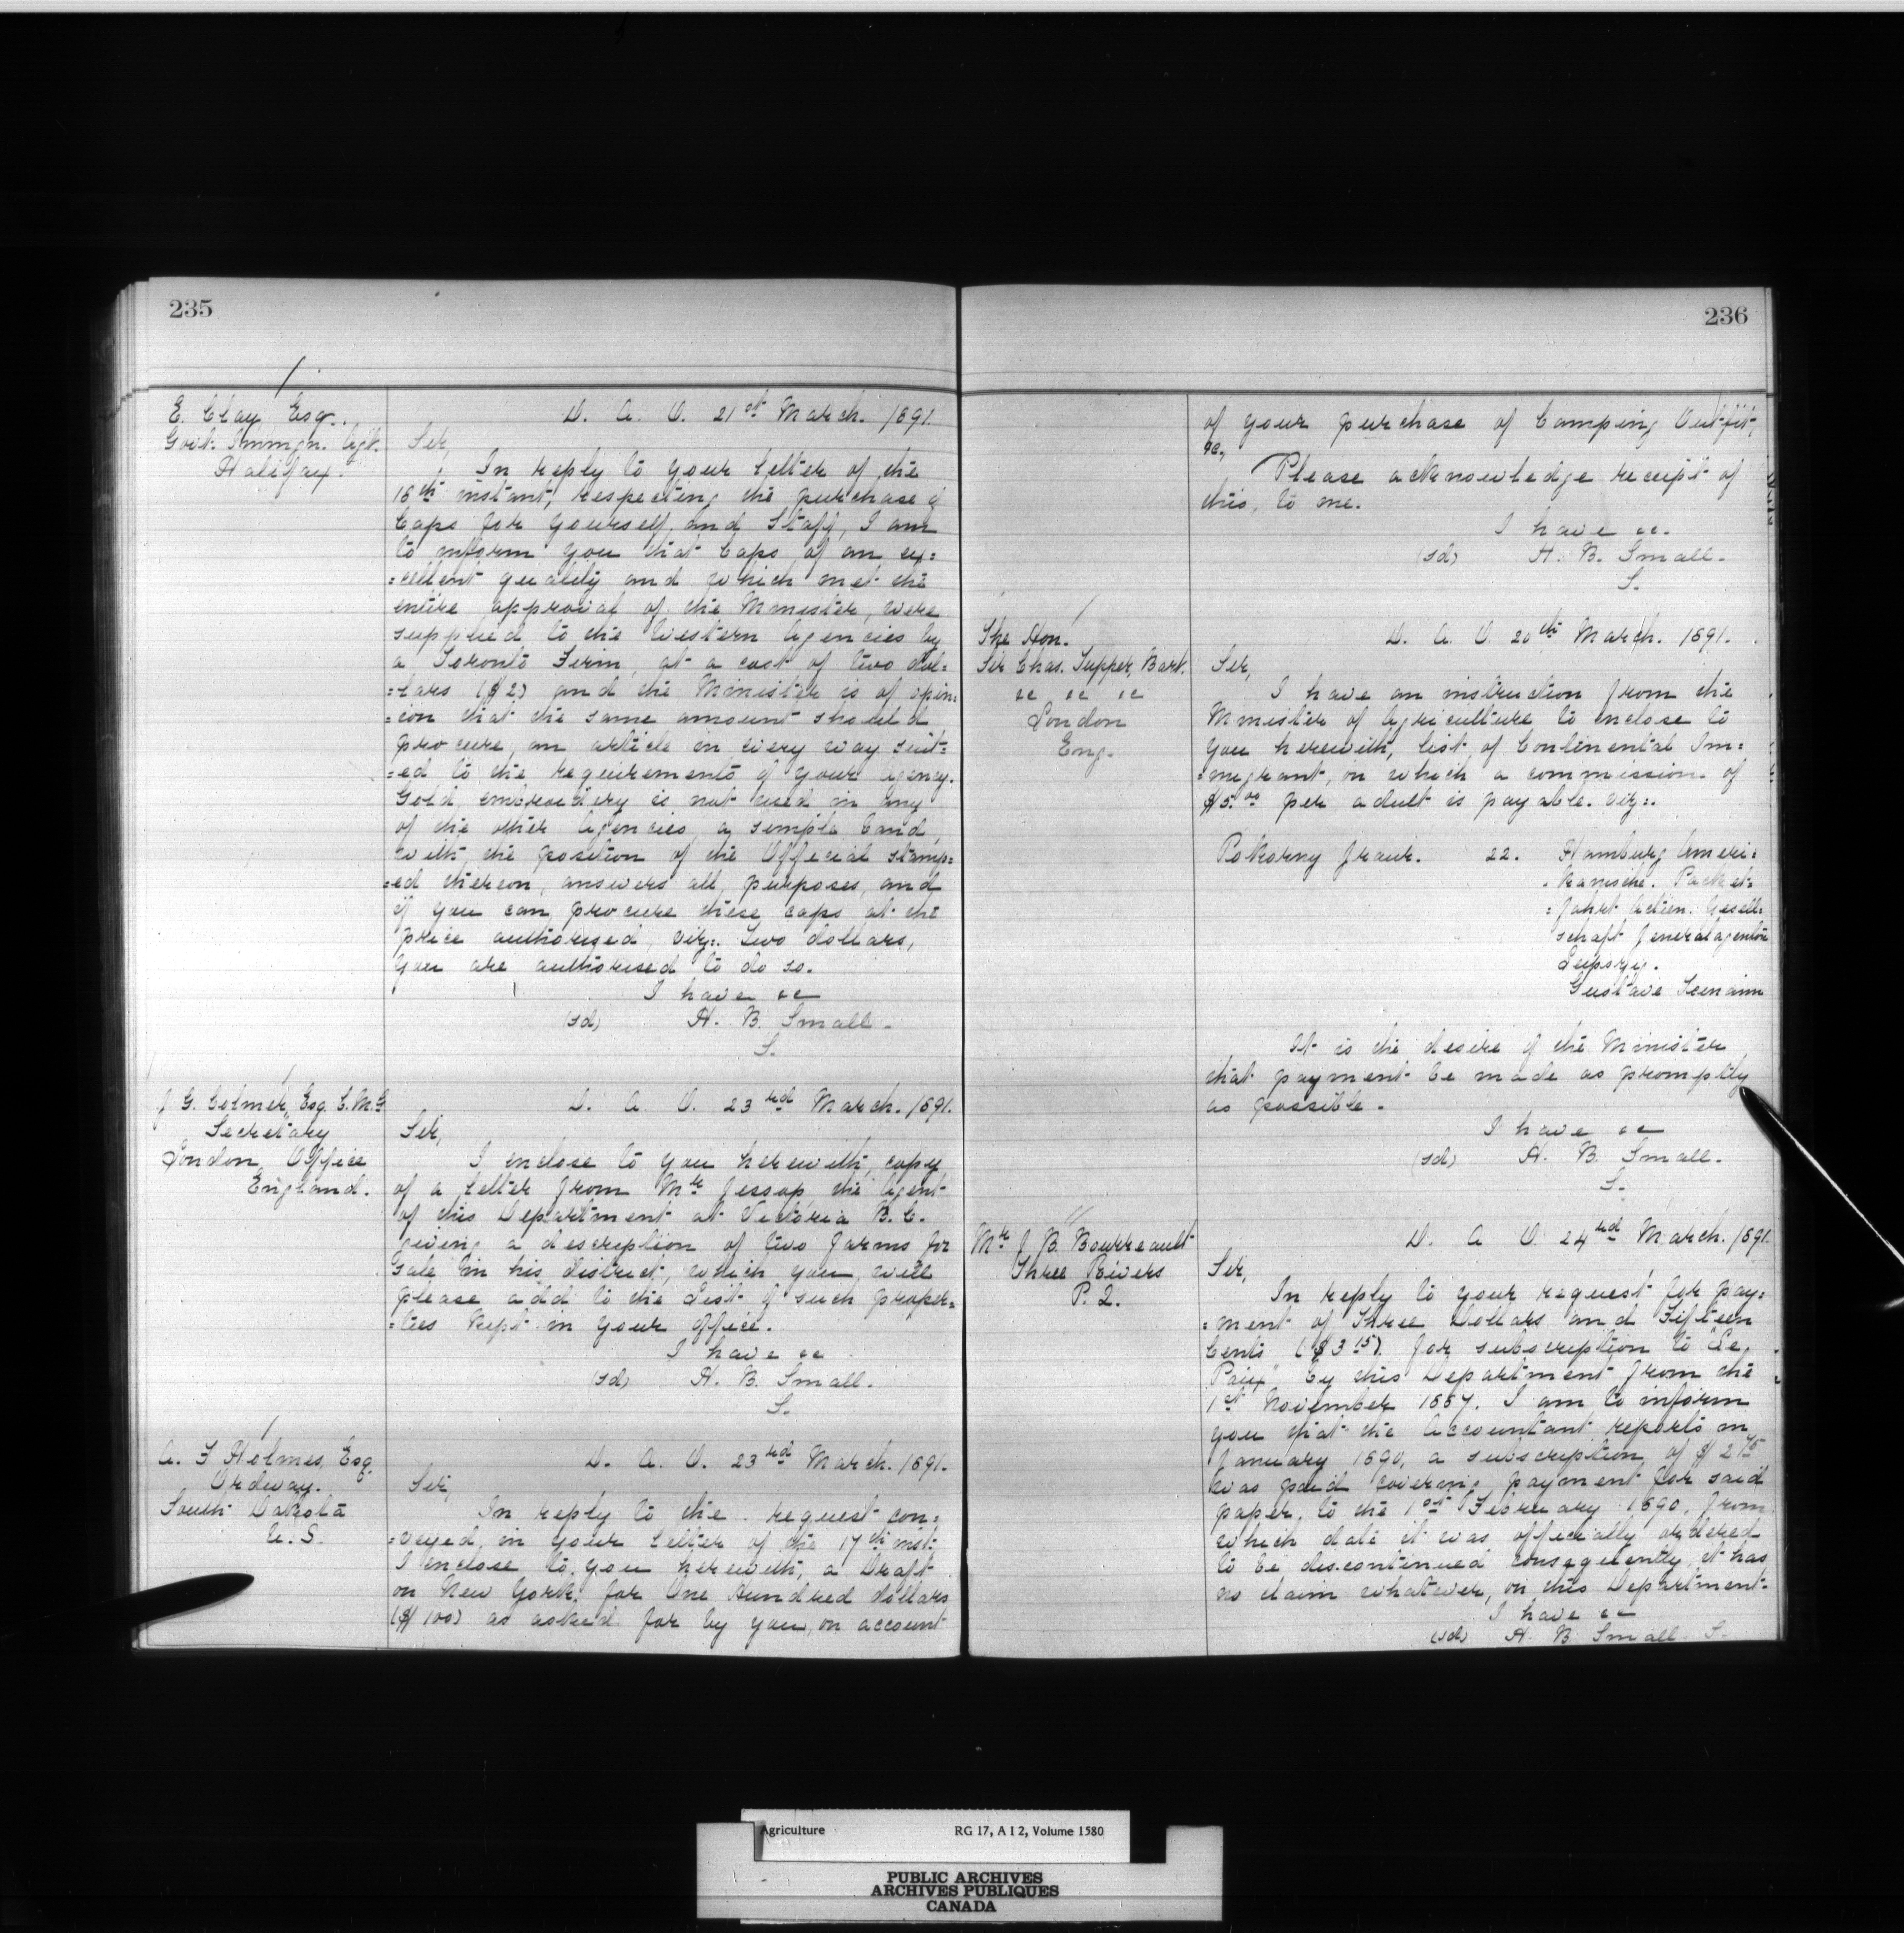 235
E. Clay Esqr.
Govt. Immgn. Agt.
Halifax.
D. A. O. 21st March. 1891.
Sir,
In reply to your letter of the
16th instant, respecting the purchase of
Caps for yourself and Staff, I am
to inform you that Caps of an ex=
=cellent quality and which met the
entire approval of the Minister, were
supplied to the Western Agencies by
a Toronto Firm, at a cost of two dol=
=lars ($2) and the Minister is of opin=
=ion that the same amount should
procure, an article in every way suit=
=ed to the requirements of your Agency.
Gold embroidery is not used in any
of the other Agencies, a simple band,
with the position of the Official stamp=
=ed thereon, answers all purposes, and
if you can procure these caps at the
price authorized, viz:. Two dollars,
you are authorised to do so.
I have &c
(sd) H. B. Small.
S.
J. G. Colmer, Esq. C.M.G
Secretary
London Office
England.
D. A. O. 23rd March. 1891.
Sir,
I enclose to you herewith, copy
of a letter from Mr Jessop, the Agent
of this Department at Victoria B.C.
giving a description of two farms for
sale in his district, which you will
please add to the List of such proper=
=ties kept in your office.
I have &c
(sd) H. B. Small.
S.
A. F Holmes, Esq.
Ordway.
South Dakota
U.S.
D. A. O. 23rd March. 1891.
Sir,
In reply to the request con=
=veyed, in your letter of the 17th inst.
I enclose to you herewith, a Draft
on New York, for One Hundred dollars
($100) as asked for by you, on account
236
of your purchase of Camping Outfit,
&c,
Please acknowledge receipt of
this, to me.
I have &c.
(sd) H. B. Small.
S.
The Hon.
Sir Chas. Tupper, Bart.
&c &c &c
London
Eng.
D. A. O. 20th March. 1891.
Sir,
I have an instruction from the
Minister of Agriculture to enclose to
you herewith, list of Continental Im=
=migrant, on which a commission of
$5.00 per adult is payable. viz:.
Pokorny Franz. 22. Hamburg Ameri=
kanische. Packet=
=fahrt Actien. Gesell=
schaft Generalagentur
Leipzig.
Gustave
It is the desire of the Minister
that payment be made as promptly
as possible.
I have &c
(sd) H. B. Small.
S.
Mr J. B. Bourreault
Three Rivers
P. Q.
D. A. O. 24rd March. 1891.
Sir,
In reply to your request for pay=
=ment of Three Dollars and Fifteen
Cents ($3.15). for subscription to "La
Paix" by this Department from the
1st November 1887. I am to inform
you that the Accountant reports in
January 1890, a subscription of $2.75
was paid covering payment for said
paper, to the 1st February 1890, from
which date it was officially ordered
to be discontinued consequently, it has
no claim whatever, on this Department.
I have &c
(sd) H. B. Small. S.
Agriculture RG 17, A I 2, Volume 1580
PUBLIC ARCHIVES
ARCHIVES PUBLIQUES
CANADA